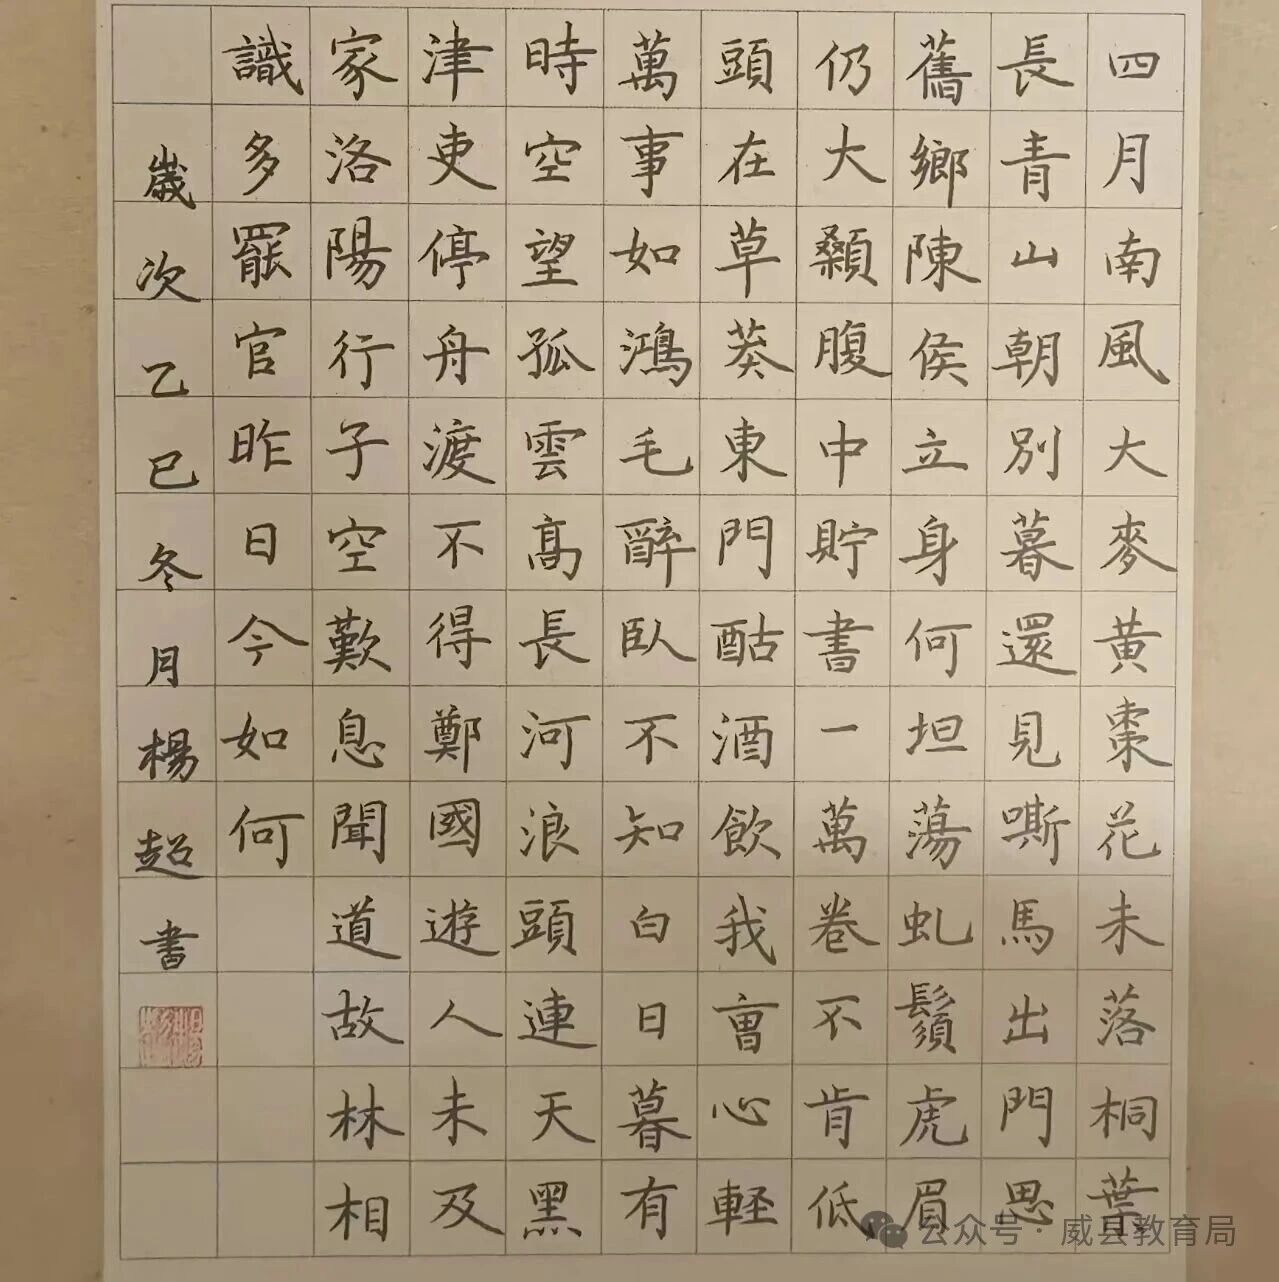 四月南風大麥黃棗花未落桐葉
長青山朝別暮還見嘶馬出門思
舊鄉陳侯立身何坦蕩虬鬚虎眉
仍大顙腹中貯書一萬卷不肯低
頭在草莽東門酤酒飲我曹心軽
萬事如鴻毛醉臥不知白日暮有
時空望孤雲高長河浪頭連天黑
津吏停舟渡不得鄭國遊人未及
家洛陽行子空歎息聞道故林相
識多罷官昨日今如何
歲次乙巳冬月楊超書
公众号·威县教育局